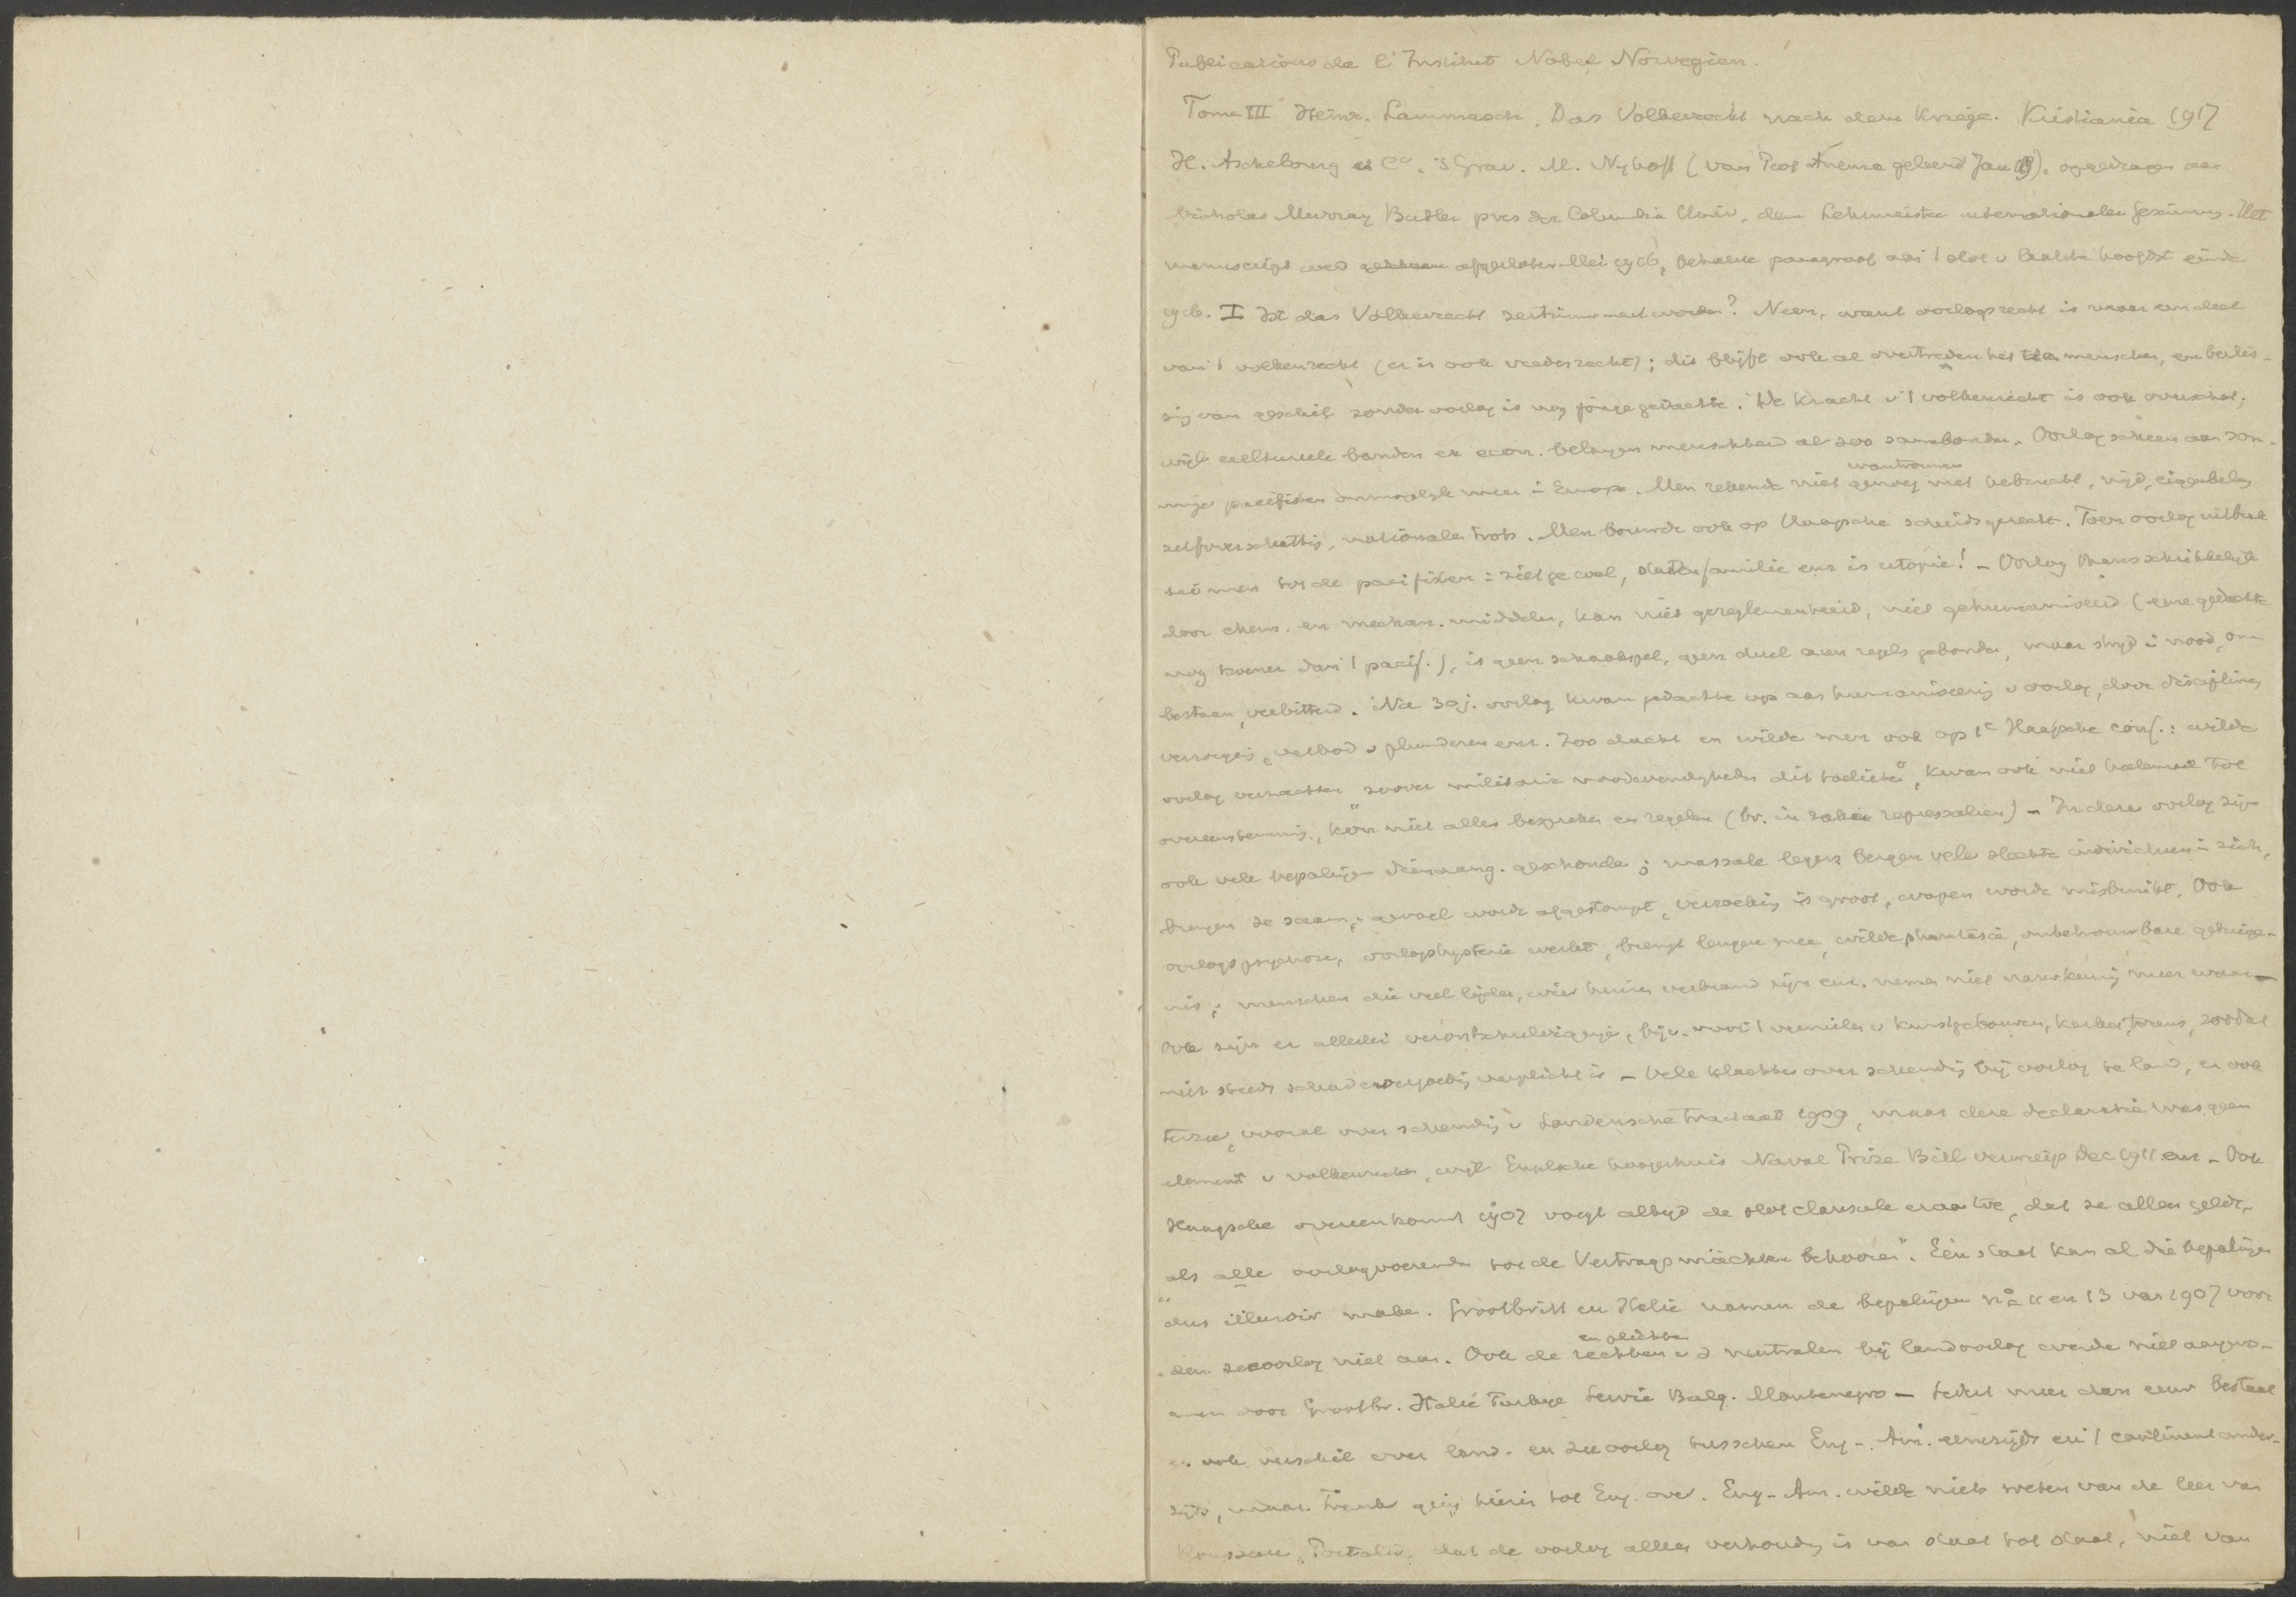 Publications de l'Institut Nobel Norvegien.
Tome III Heinr. Lammasch, Das Völkerrecht nach dem Kriege. Kristiania 1917
H. Aschehoug et Co. 's Grav. M. Nyhoff (van Prof Anema geleend Jan 18). opgedragen aan
Nicholas Murray Butler pres der Columbia Univ. dem Lehrmeister internationaler Gesinnung. Het
manuscript werd afgesloten Mei 1916, behalve paragraaf aan 't slot v laatste hoofdst einde
1916. I Ist das Völkerrecht zertrümmert worden? Neen, want oorlogsrecht is maar een deel
van 't volkenrecht (er is ook vredesrecht); dit blijft ook al overtreden het de menschen, en beslis-
sing van geschil zonder oorlog is nog jonge gedachte. De kracht v 't volkenrecht is ook overschat;
wijl cultureele banden en econ. belangen menschheid al zoo samenbonden. Oorlog scheen aan som-
mige pacifisten onmogelyk meer in Europa. Men rekende niet genoeg met wantrouwen, nijd, eigenbelang
zelfoverschatting, nationale trots. Men bouwde ook op Haagsche scheidsgerecht. Toen oorlog uitbrak
zei men tot de pacifisten: ziet ge wel, statenfamilie enz is utopie! - Oorlog thans schrikkelijk
door chem. en mechan. middelen, kan niet gereglementeerd, niet gehumaniseerd (eene gedachte
nog dan 't pacif.), is geen schaakspel, geen duel aan regels gebonden, maar strijd in nood, om
bestaan, verbitterd. Na 30j. oorlog kwam gedachte op aan humaniseering v oorlog, door discipline,
verzorging, verbod v plunderen enz. Zoo dacht en wilde men ook op 1e Haagsche conf.: wilde
oorlog verzachten "zoover militaire noodwendigheden dit toelieten", kwam ook niet heelemaal tot
overeenstemming, kon niet alles bespreken en regelen (bv. in zake repressaliën) - In dezen oorlog zijn
ook vele bepalingen geschonden; massale legers bergen vele slechte individuen in zich,
brengen ze saam; gevoel wordt afgestompt, verzoeking is groot, wapen wordt misbruikt. Ook
oorlogspsychose, oorlogshysterie werkt, brengt leugen mee, wilde phantasie, onbetrouwbare getuige-
nis; menschen die veel lijden, wier huizen verbrand zijn enz. nemen niet nauwkeurig meer waar -
Ook zijn er allerlei verontschuldigingen, bijv. voor 't vernielen v kunstgebouwen, kerken, torens, zoodat
niet steeds schadevergoeding verplicht is - Vele klachten over schending bij oorlog te land, en ook
ter zee, vooral over schending v Londensche tractaat 1909, maar deze declaratie was geen
element v volkenrecht, wijl Engelsche hoogerhuis Naval Prize Bill verwierp Dec 1911 enz - Ook
Haagsche overeenkomst 1907 voegt altijd de slotclausule eraan toe, dat ze alleen geldt,
"als alle oorlogvoerenden tot de Vertragsmächten behooren". Één staat kan al die bepalingen
dus illusoir maken. Grootbritt en Italië namen de bepalingen no. 11 en 13 van 1907 voor
den zeeoorlog niet aan. Ook de rechten en plichten v d neutralen bij landoorlog werden niet aangeno-
men door Grootbr. Italië Turkye Servie Bulg. Montenegro - Sedert meer dan eeuw bestaat
er ook verschil over land- en zeeoorlog tusschen Eng-. Am. eenerzijds en 't continent ander-
zijds, maar Frank ging hierin tot Eng. over. Eng-Am. wilde niets weten van de leer van
Rousseau, Portalis, dat de oorlog alleen verhouding is van staat tot staat, niet van